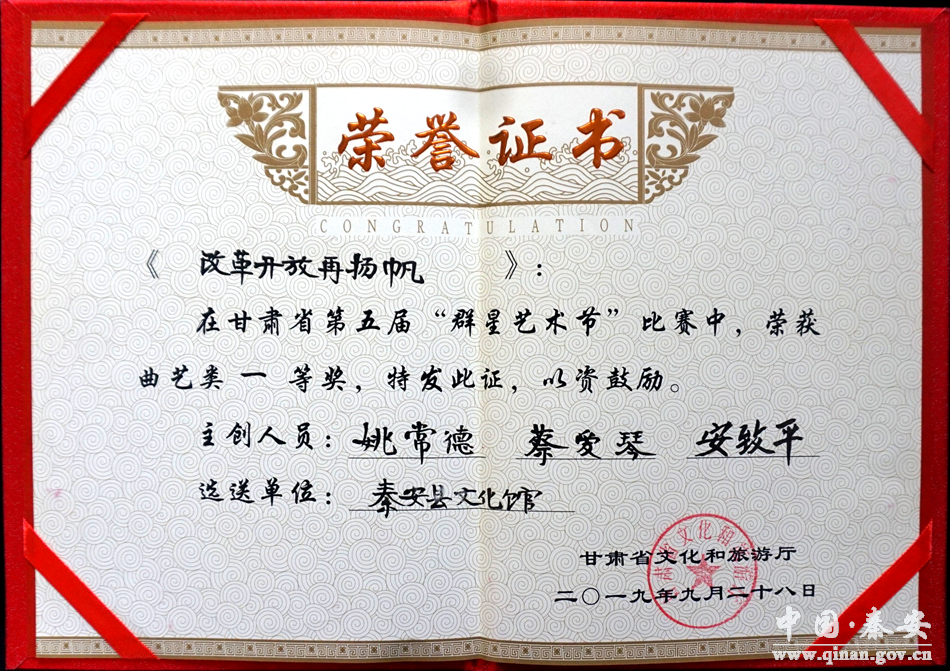 荣誉证书
CONGRATULATION
《 改革开放再扬帆 》：
在甘肃省第五届“群星艺术节”比赛中，荣获
曲艺类 一 等奖，特发此证，以资鼓励。
主创人员：姚常德 蔡爱琴 安致平
选送单位：秦安县文化馆
甘肃省文化和旅游厅
二〇一九年九月二十八日
中国·秦安
www.qinan.gov.cn